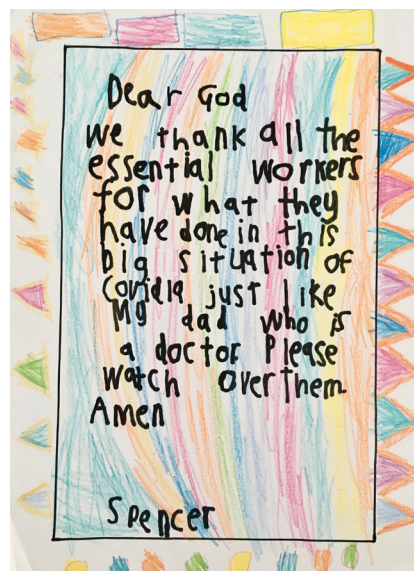 Dear God
we thank all the
essential workers
for what they
have done in this
big situation of
Covid19 just like
My dad who is
a doctor Please
watch over them
Amen
Spencer